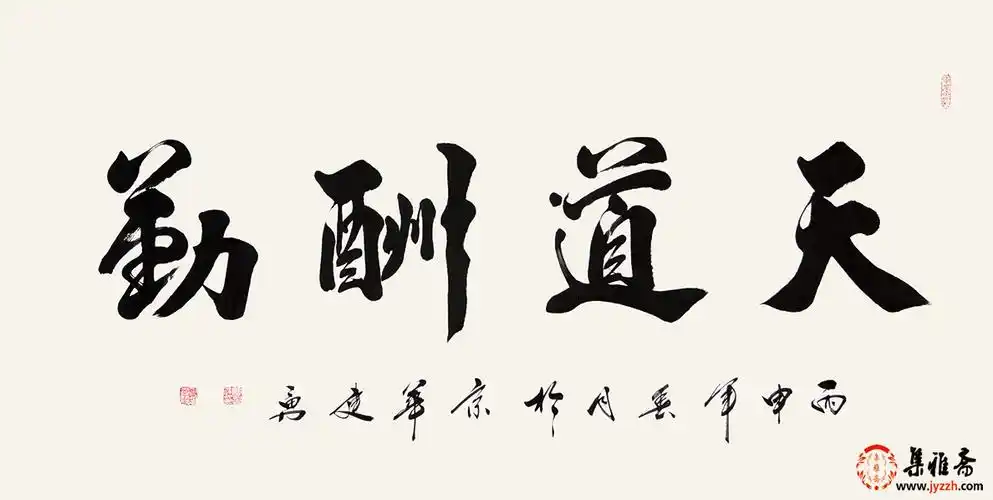 天道酬勤
丙申年春月於京
集雅斋
www.jyzzh.com